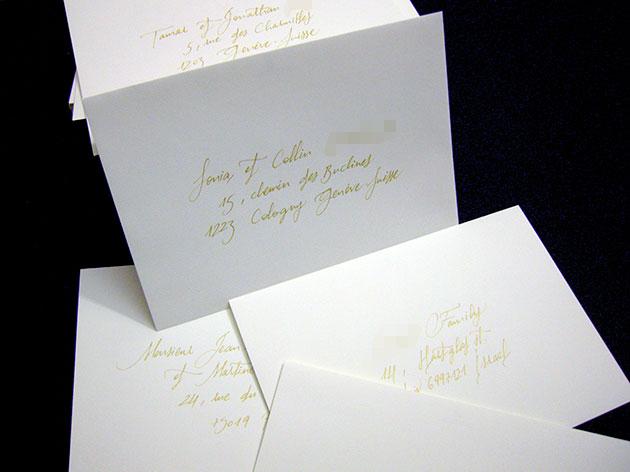 Tamar et Jonathan
5, rue des Charmilles
1203 Genève-Suisse
Sonia et Collin
15, chemin des Buclines
1223 Cologny Genève-Suisse
Monsieur Jean
et Martin
24, rue du
75019
Family
st.
6997121 Israel